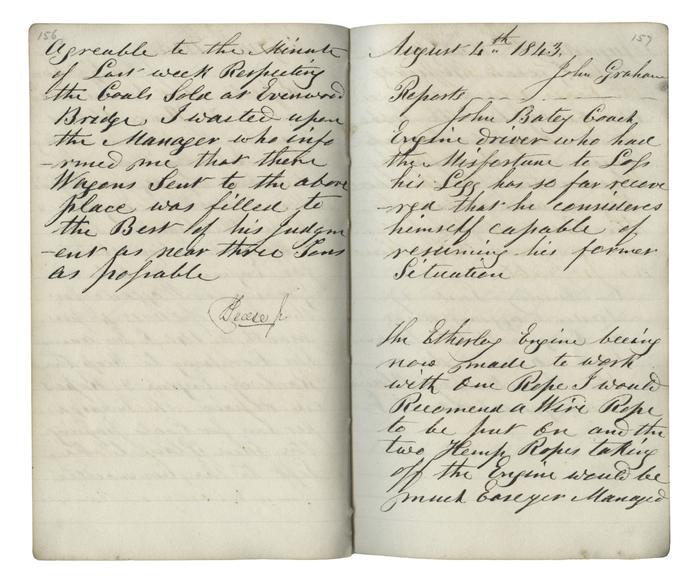 156
Agreable to the Minute
of Last week Respecting
the Coals Sold at Evenwood
Bridge I waited upon
the Manager who info
-rmed me that there
Wagons Sent to the above
place was filled to
the Best of his Judgm
-ent as near three Tons
as possable
157
August 4th 1843.
John Graham
Reports
John Batey Coach
Engine driver who had
the Misfortune to Loss
his Legg has so far recove
-red that he consideres
himself capable of
resuming his former
Situation
the Etherley Engine beeing
now made to work
with one Rope I would
Recomend a Wire Rope
to be put on and the
two Hemp Ropes taking
off the Engine would be
much Easeyer Managed